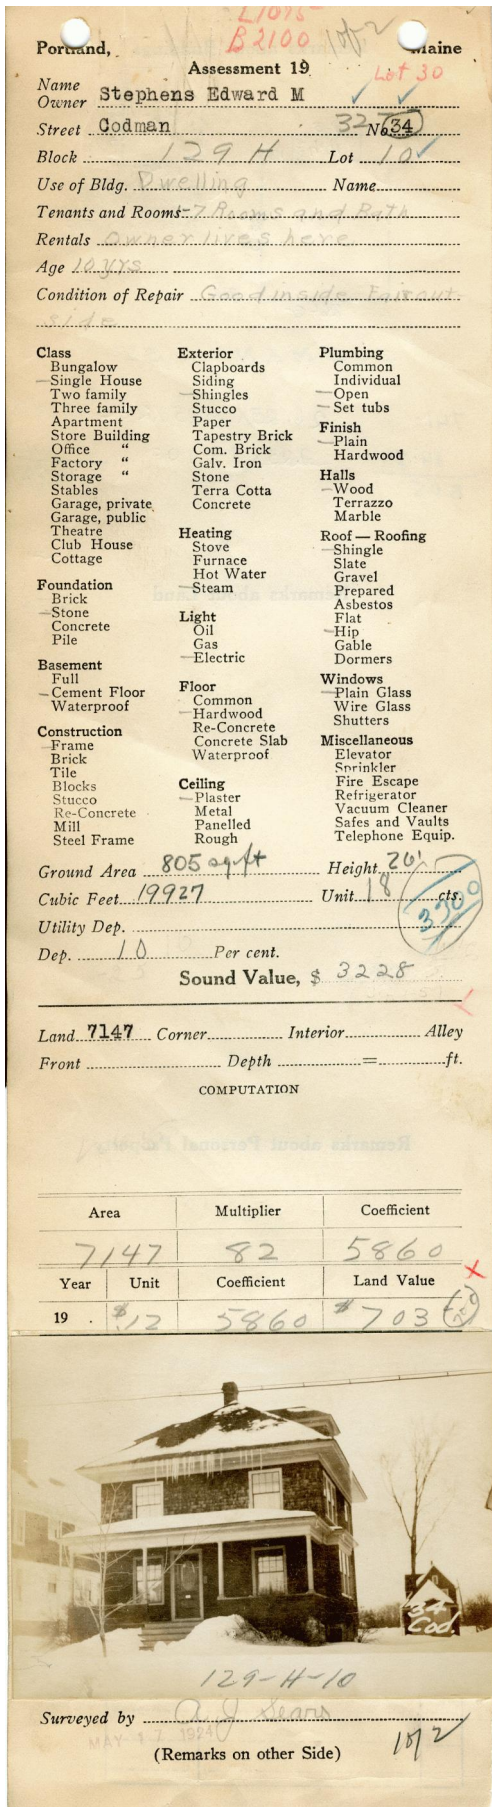 L1095
B2100 1of2
Portland, Maine
Assessment 19
Lot 30
Name
Owner Stephens Edward M
Street Codman 32 No 34
Block 129 H Lot 10
Use of Bldg. Dwelling Name
Tenants and Rooms 1-7 Rooms and Bath
Rentals Owner lives here
Age 10 yrs
Condition of Repair Good inside Fair out-
side
Class
Bungalow
Single House
Two family
Three family
Apartment
Store Building
Office "
Factory "
Storage "
Stables
Garage, private
Garage, public
Theatre
Club House
Cottage
Foundation
Brick
Stone
Concrete
Pile
Basement
Full
Cement Floor
Waterproof
Construction
Frame
Brick
Tile
Blocks
Stucco
Re-Concrete
Mill
Steel Frame
Exterior
Clapboards
Siding
Shingles
Stucco
Paper
Tapestry Brick
Com. Brick
Galv. Iron
Stone
Terra Cotta
Concrete
Heating
Stove
Furnace
Hot Water
Steam
Light
Oil
Gas
Electric
Floor
Common
Hardwood
Re-Concrete
Concrete Slab
Waterproof
Ceiling
Plaster
Metal
Panelled
Rough
Plumbing
Common
Individual
Open
Set tubs
Finish
Plain
Hardwood
Halls
Wood
Terrazzo
Marble
Roof — Roofing
Shingle
Slate
Gravel
Prepared
Asbestos
Flat
Hip
Gable
Dormers
Windows
Plain Glass
Wire Glass
Shutters
Miscellaneous
Elevator
Sprinkler
Fire Escape
Refrigerator
Vacuum Cleaner
Safes and Vaults
Telephone Equip.
Ground Area 805 sq ft Height 26'
Cubic Feet 19927 Unit 18 cts.
3300
Utility Dep.
Dep. 10 Per cent.
Sound Value, $ 3228
Land 7147 Corner Interior Alley
Front Depth = ft.
COMPUTATION
Area Multiplier Coefficient
7147 82 5860
Year Unit Coefficient Land Value
19 . $.12 5860 $703
34
Cod.
129-H-10
Surveyed by A J Sears
MAY 17 1924
(Remarks on other Side)
1of2